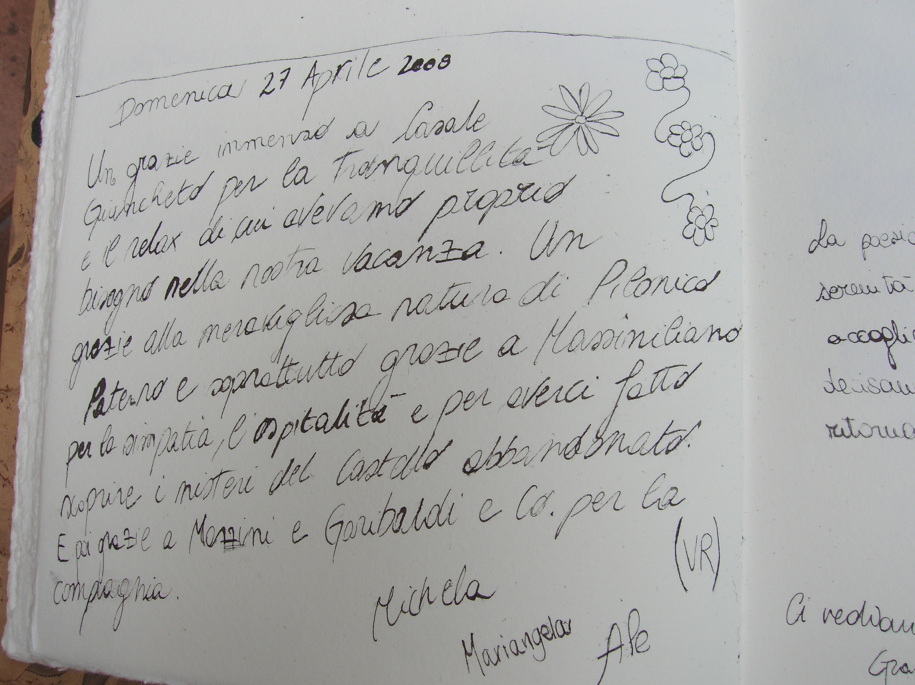 Domenica 27 Aprile 2008
Un grazie immenso a Casale
Giancheto per la Tranquillità
e il relax di cui avevamo proprio
bisogno nella nostra vacanza. Un
grazie alla meravigliosa natura di Pilonico
Paterno e soprattutto grazie a Massimiliano
per la simpatia, l'ospitalità e per averci fatto
scoprire i misteri del Castello abbandonato.
E poi grazie a Mazzini e Garibaldi e Co. per la
compagnia.
Michela
Mariangela
Ale
(VR)
La
serenità
ritorna
Ci vediam
Gra